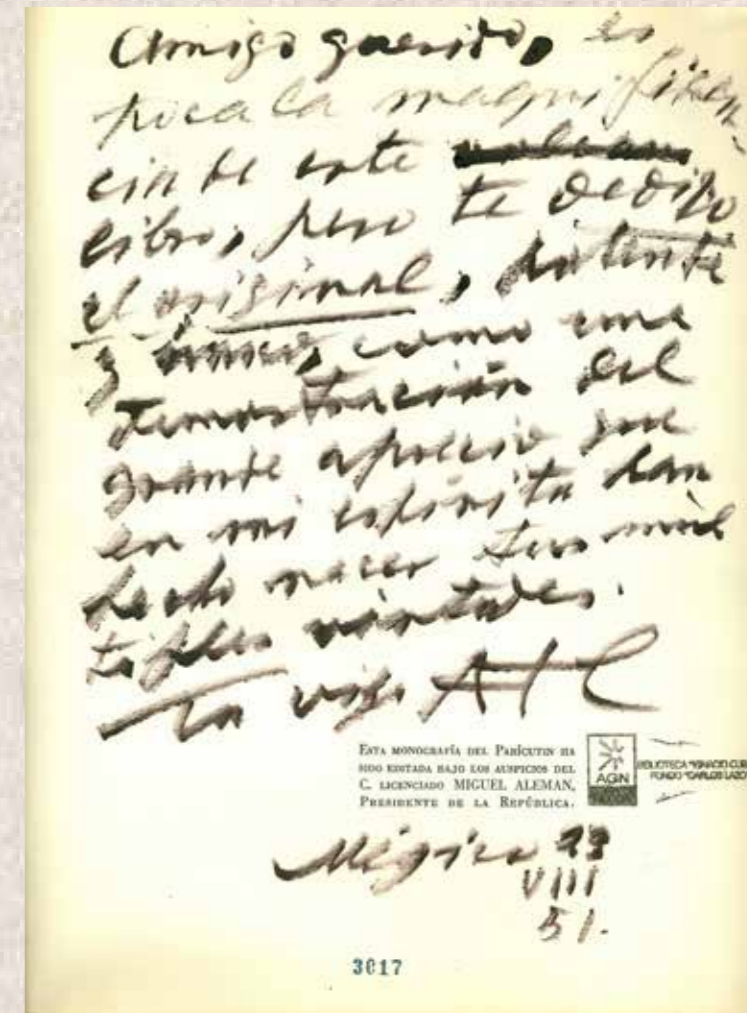 Amigo querido, es
poca la magnificen-
cia de este volcan
libro, pero te dedico
el original, 
y como una
demostración del
grande aprecio que
en mi espíritu han
hecho nacer tus múl
tiples virtudes.
Tu viejo Atl
ESTA MONOGRAFÍA DEL PARÍCUTIN HA
SIDO EDITADA BAJO LOS AUSPICIOS DEL
C. LICENCIADO MIGUEL ALEMAN,
PRESIDENTE DE LA REPÚBLICA.
AGN
BIBLIOTECA "IGNACIO CUB
FONDO "CARLOS LAZO"
Méjico 23
VIII
51.
3617